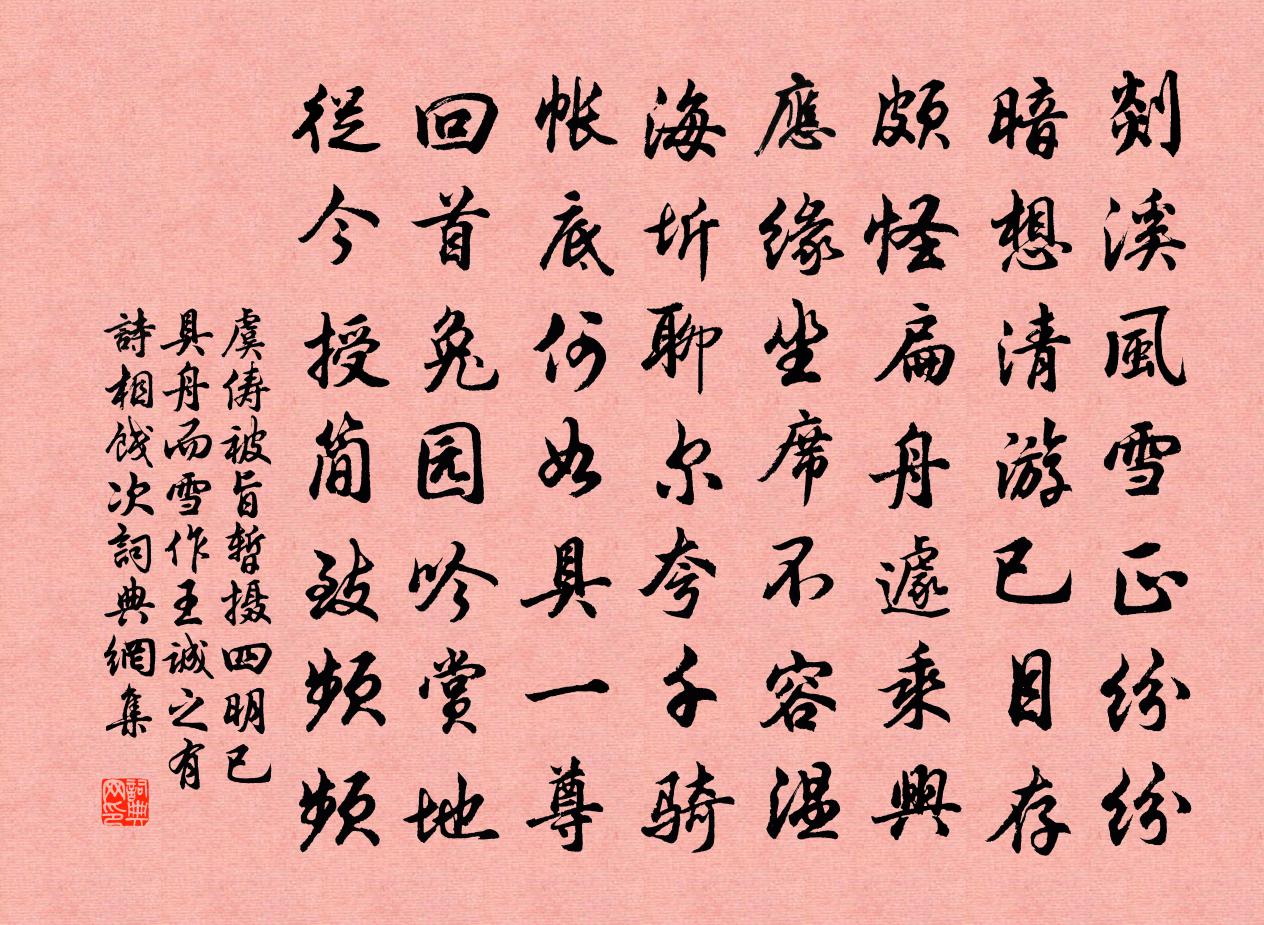 剡溪風雪正紛紛
暗想清游已目存
頗怪扁舟遽乘興
應緣坐席不容溫
海圻聊尔夸千騎
帳底何如具一尊
回首兔园吟賞地
從今授简致頻頻
虞儔被旨暫摄四明已
具舟而雪作王誠之有
詩相餞次詞典網集
詞典
网印